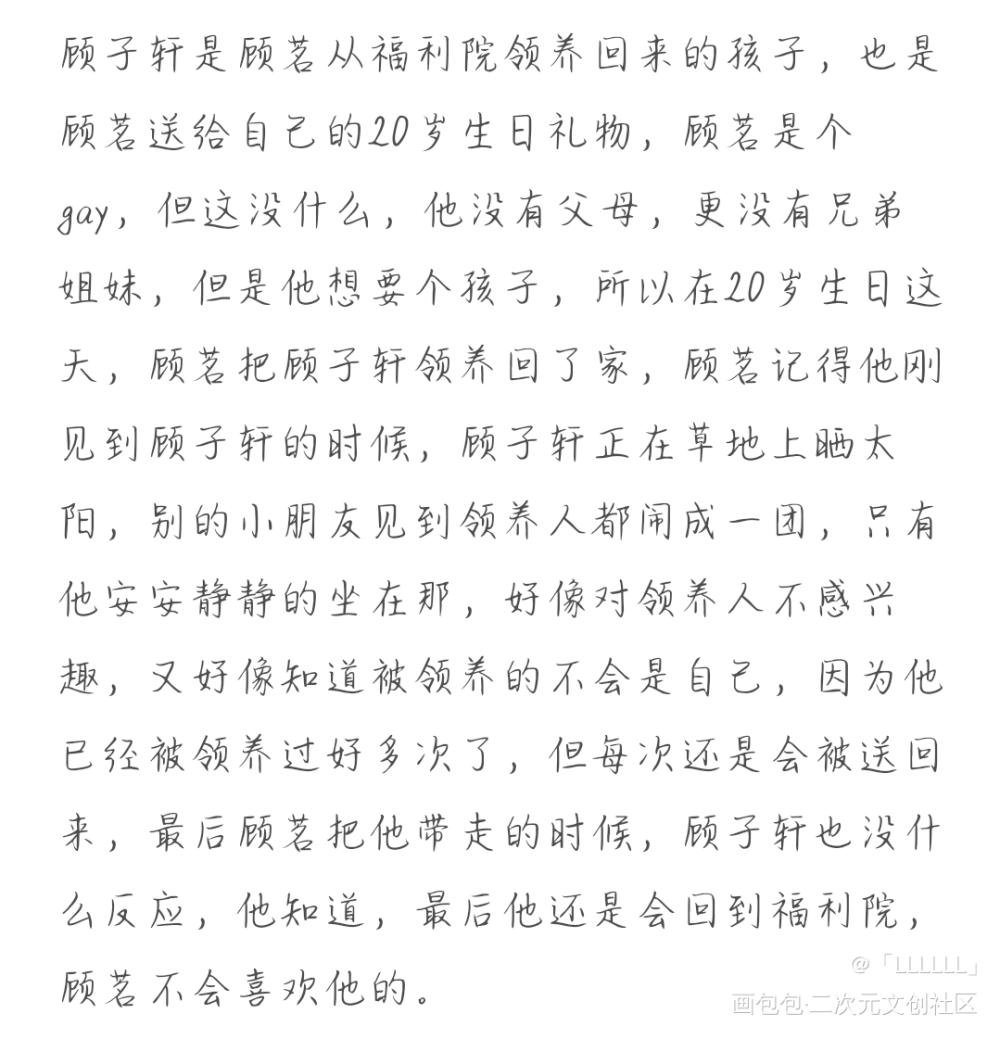 顾子轩是顾茗从福利院领养回来的孩子，也是
顾茗送给自己的20岁生日礼物，顾茗是个
gay，但这没什么，他没有父母，更没有兄弟
姐妹，但是他想要个孩子，所以在20岁生日这
天，顾茗把顾子轩领养回了家，顾茗记得他刚
见到顾子轩的时候，顾子轩正在草地上晒太
阳，别的小朋友见到领养人都闹成一团，只有
他安安静静的坐在那，好像对领养人不感兴
趣，又好像知道被领养的不会是自己，因为他
已经被领养过好多次了，但每次还是会被送回
来，最后顾茗把他带走的时候，顾子轩也没什
么反应，他知道，最后他还是会回到福利院，
顾茗不会喜欢他的。
@「LLLLLL」
画包包·二次元文创社区